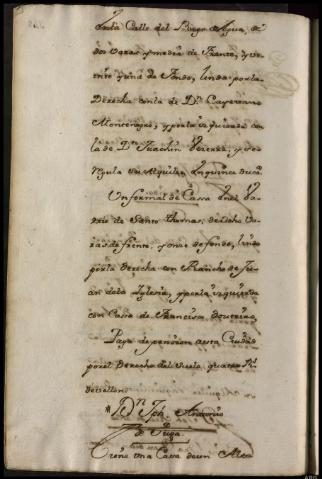 en la Calle del Burgo Agua, de
dos varas y media de frente, y ve-
inte y una de fondo, linda por la
Derecha con la de Dn. Cayetano
Montenegro, y por la izquierda co
la de Dn. Juachin Vecerra, y se re-
gula su Alquiler en quince duca
Un formal de Cassa en el Va-
rrio de Santo Thomas, de ocho va-
ras de frente, y onze de fondo, linda
por la derecha con Rancho de Ju-
an de la Yglesia, y por la izquierda
con Cassa de Francisca Douteiro,
Paga de pension a esta Ciudad
por el Derecho del suelo quatro Rs.
de vellon
Dn. Jph. Antonio
de Puga
Tiene una Cassa de un Alto